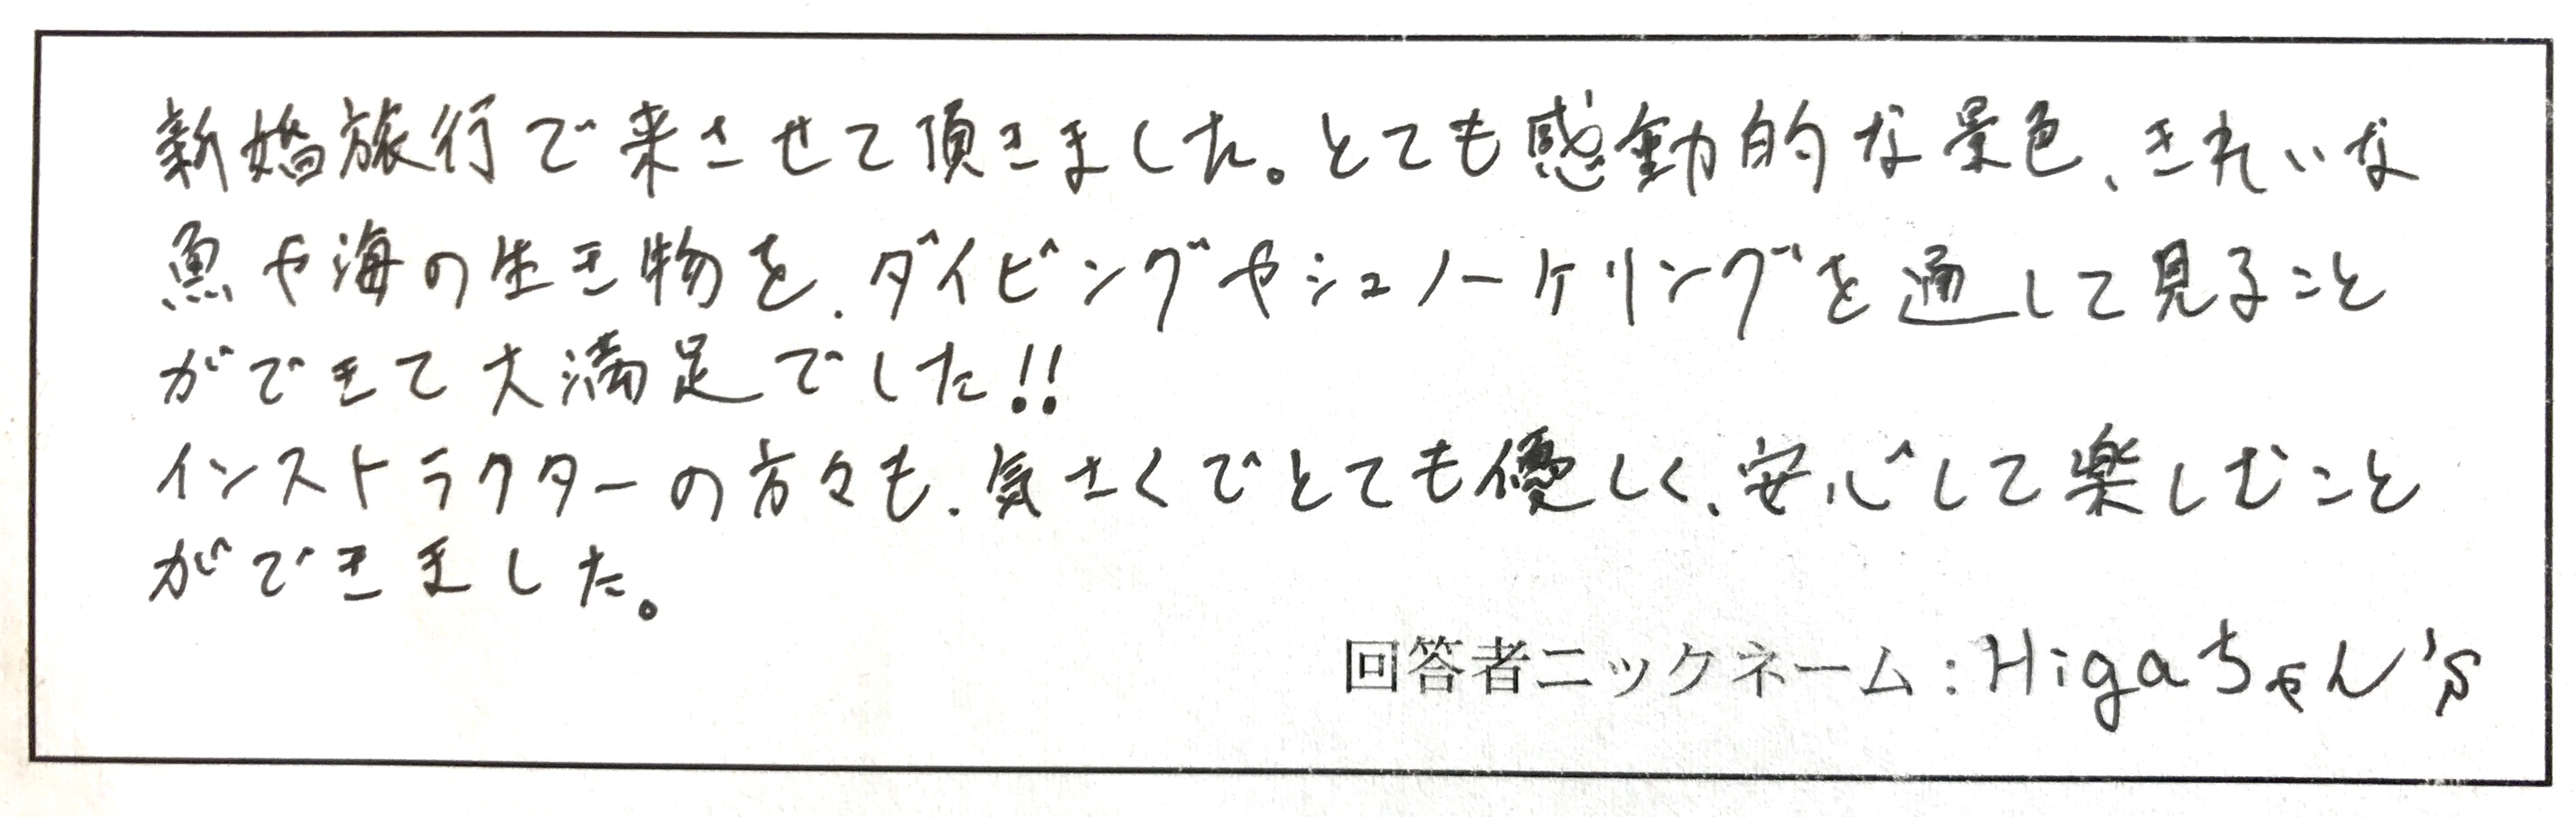 新婚旅行で来させて頂きました。とても感動的な景色、きれいな
魚や海の生き物を、ダイビングやシュノーケリングを通して見ること
ができて大満足でした!!
インストラクターの方々も、気さくでとても優しく、安心して楽しむこと
ができました。
回答者ニックネーム：Higaちゃん's